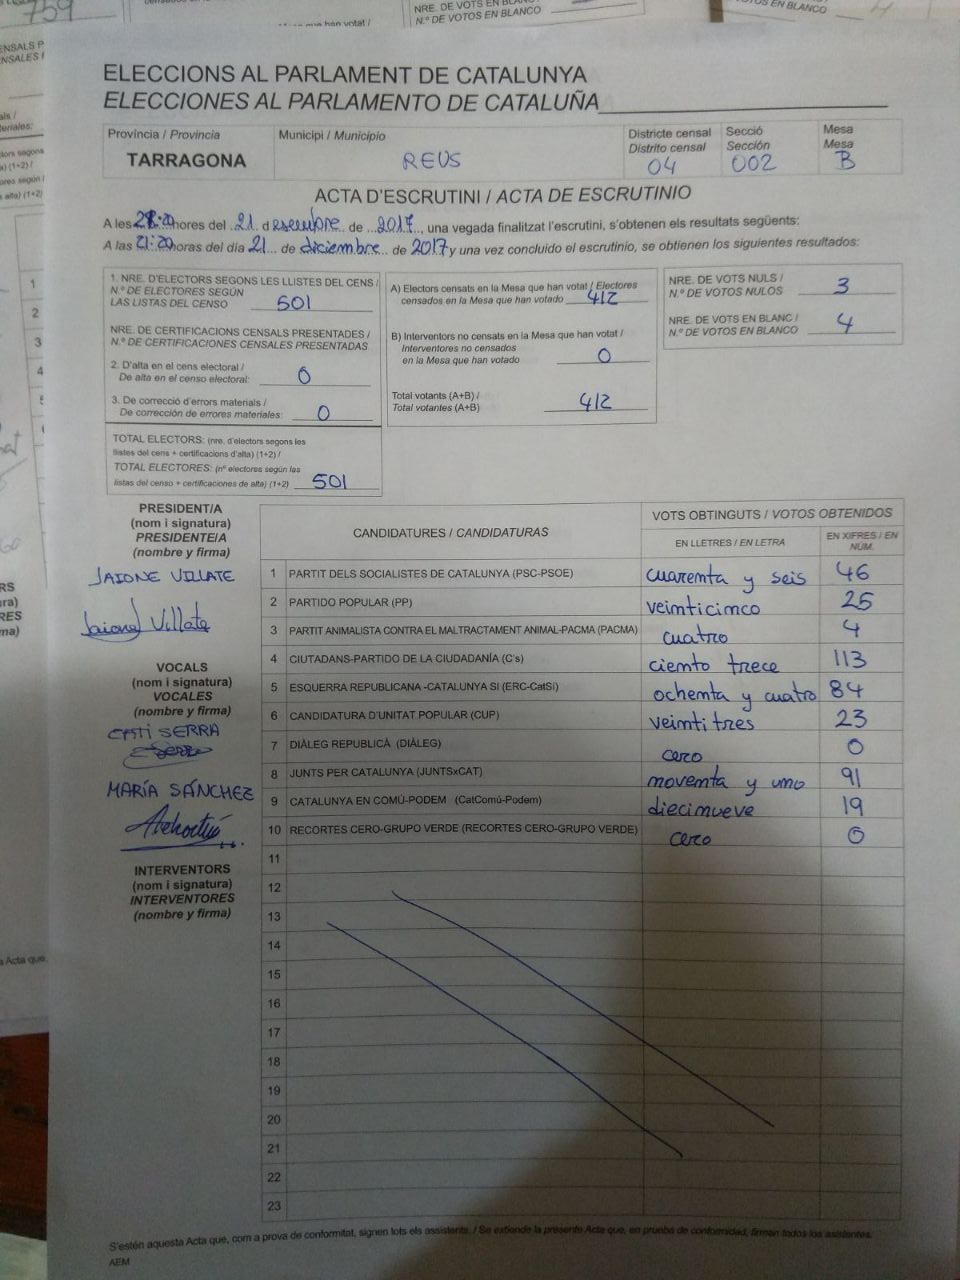 759
NRE. DE VOTS EN
N.º DE VOTOS EN BLANCO
ELECCIONS AL PARLAMENT DE CATALUNYA
ELECCIONES AL PARLAMENTO DE CATALUÑA
Província / Provincia
TARRAGONA
Municipi / Municipio
REUS
Districte censal
Distrito censal
04
Secció
Sección
002
Mesa
Mesa
B
ACTA D'ESCRUTINI / ACTA DE ESCRUTINIO
A les 21:20 hores del 21 d desembre de 2017, una vegada finalitzat l'escrutini, s'obtenen els resultats següents:
A las 21:20 horas del día 21 de diciembre de 2017 y una vez concluido el escrutinio, se obtienen los siguientes resultados:
1. NRE. D'ELECTORS SEGONS LES LLISTES DEL CENS /
N.º DE ELECTORES SEGÚN
LAS LISTAS DEL CENSO 501
NRE. DE CERTIFICACIONS CENSALS PRESENTADES /
N.º DE CERTIFICACIONES CENSALES PRESENTADAS
2. D'alta en el cens electoral /
De alta en el censo electoral: 0
3. De correcció d'errors materials /
De corrección de errores materiales: 0
TOTAL ELECTORS: (nre. d'electors segons les
llistes del cens + certificacions d'alta) (1+2) /
TOTAL ELECTORES: (nº electores según las
listas del censo + certificaciones de alta) (1+2) 501
A) Electors censats en la Mesa que han votat / Electores
censados en la Mesa que han votado 412
B) Interventors no censats en la Mesa que han votat /
Interventores no censados
en la Mesa que han votado 0
Total votants (A+B) /
Total votantes (A+B) 412
NRE. DE VOTS NULS /
N.º DE VOTOS NULOS 3
NRE. DE VOTS EN BLANC /
N.º DE VOTOS EN BLANCO 4
PRESIDENT/A
(nom i signatura)
PRESIDENTE/A
(nombre y firma)
JAIONE VILLATE
Jaione Villate
VOCALS
(nom i signatura)
VOCALES
(nombre y firma)
ESTI SERRA
MARÍA SÁNCHEZ
INTERVENTORS
(nom i signatura)
INTERVENTORES
(nombre y firma)
CANDIDATURES / CANDIDATURAS
VOTS OBTINGUTS / VOTOS OBTENIDOS
EN LLETRES / EN LETRA
EN XIFRES / EN
NÚM.
1 PARTIT DELS SOCIALISTES DE CATALUNYA (PSC-PSOE) cuarenta y seis 46
2 PARTIDO POPULAR (PP) veinticinco 25
3 PARTIT ANIMALISTA CONTRA EL MALTRACTAMENT ANIMAL-PACMA (PACMA) cuatro 4
4 CIUTADANS-PARTIDO DE LA CIUDADANÍA (C's) ciento trece 113
5 ESQUERRA REPUBLICANA -CATALUNYA SI (ERC-CatSí) ochenta y cuatro 84
6 CANDIDATURA D'UNITAT POPULAR (CUP) veintitres 23
7 DIÀLEG REPUBLICÀ (DIÀLEG) cero 0
8 JUNTS PER CATALUNYA (JUNTSxCAT) noventa y uno 91
9 CATALUNYA EN COMÚ-PODEM (CatComú-Podem) diecinueve 19
10 RECORTES CERO-GRUPO VERDE (RECORTES CERO-GRUPO VERDE) cero 0
11
12
13
14
15
16
17
18
19
20
21
22
23
S'estén aquesta Acta que, com a prova de conformitat, signen tots els assistents. / Se extiende la presente Acta que, en prueba de conformidad, firman todos los asistentes.
AEM